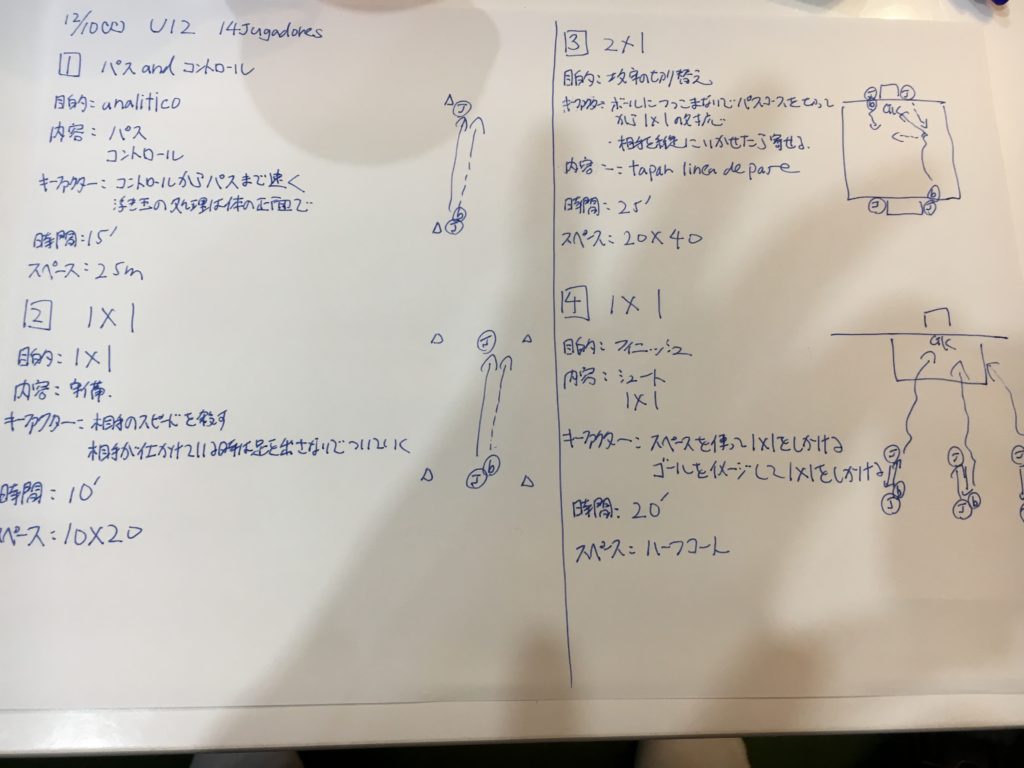 12/10(火) U12 14Jugadores
1 パス and コントロール
目的: analitico
内容: パス
コントロール
キーファクター: コントロールからパスまで速く
浮き玉の処理は体の正面で
時間: 15′
スペース: 25m
2 1×1
目的: 1×1
内容: 守備.
キーファクター: 相手のスピードを殺す
相手が仕かけている時は足を出さないでついていく
時間: 10′
スペース: 10×20
3 2×1
目的: 攻守の切り替え
キーファクター: ボールにつっこまないでパスコースをきって
から1×1の対応
・相手を縦にいかせたら寄せる
内容: tapar linea de pase
時間: 25′
スペース: 20×40
4 1×1
目的: フィニッシュ
内容: シュート
1×1
キーファクター: スペースを使って1×1をしかける
ゴールをイメージして1×1をしかける
時間: 20′
スペース: ハーフコート
J
J
b
J
J
b
J
J
b
GK
J
J
b
GK
J
J
J
J
b
J
b
J